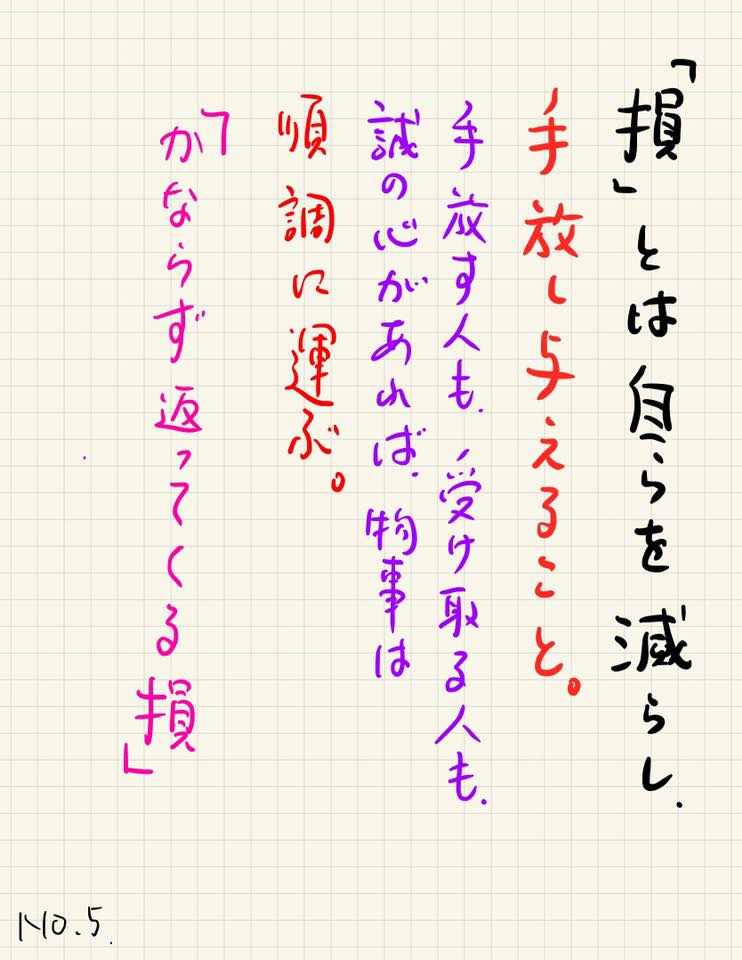 「損」とは自らを減らし、
手放し与えること。
手放す人も、受け取る人も、
誠の心があれば、物事は
順調に運ぶ。
「かならず返ってくる損」
NO.5.